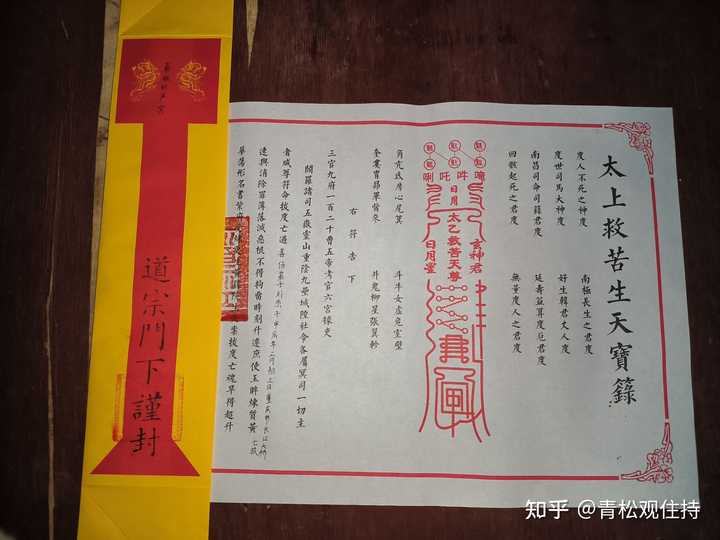 太上救苦生天寶籙
度人不死之神度 南極長生之君度
度世司馬大神度 好生韓君丈人度
南昌司命司籍君度 延壽益算度厄君度
回骸起死之君度 無量度人之君度
唎吒吽
日月
太乙救苦天尊
日月星
玄神君
角亢氐房心尾箕 斗牛女虛危室壁
奎婁胃昴畢觜參 井鬼柳星張翼軫
右符告下
三官九府一百二十曹五帝考官六宮掾吏
羅諸司五嶽靈山重陰九壘城隍社令各屬冥司一切主
者咸尊符命拔度亡過
速與消除罪簿落滅惡根不得拘留時刻升遷庶使玉眸煉質黃
華蕩形名書紫 拔度亡魂早得超升
道宗門下謹封
知乎 @青松观住持